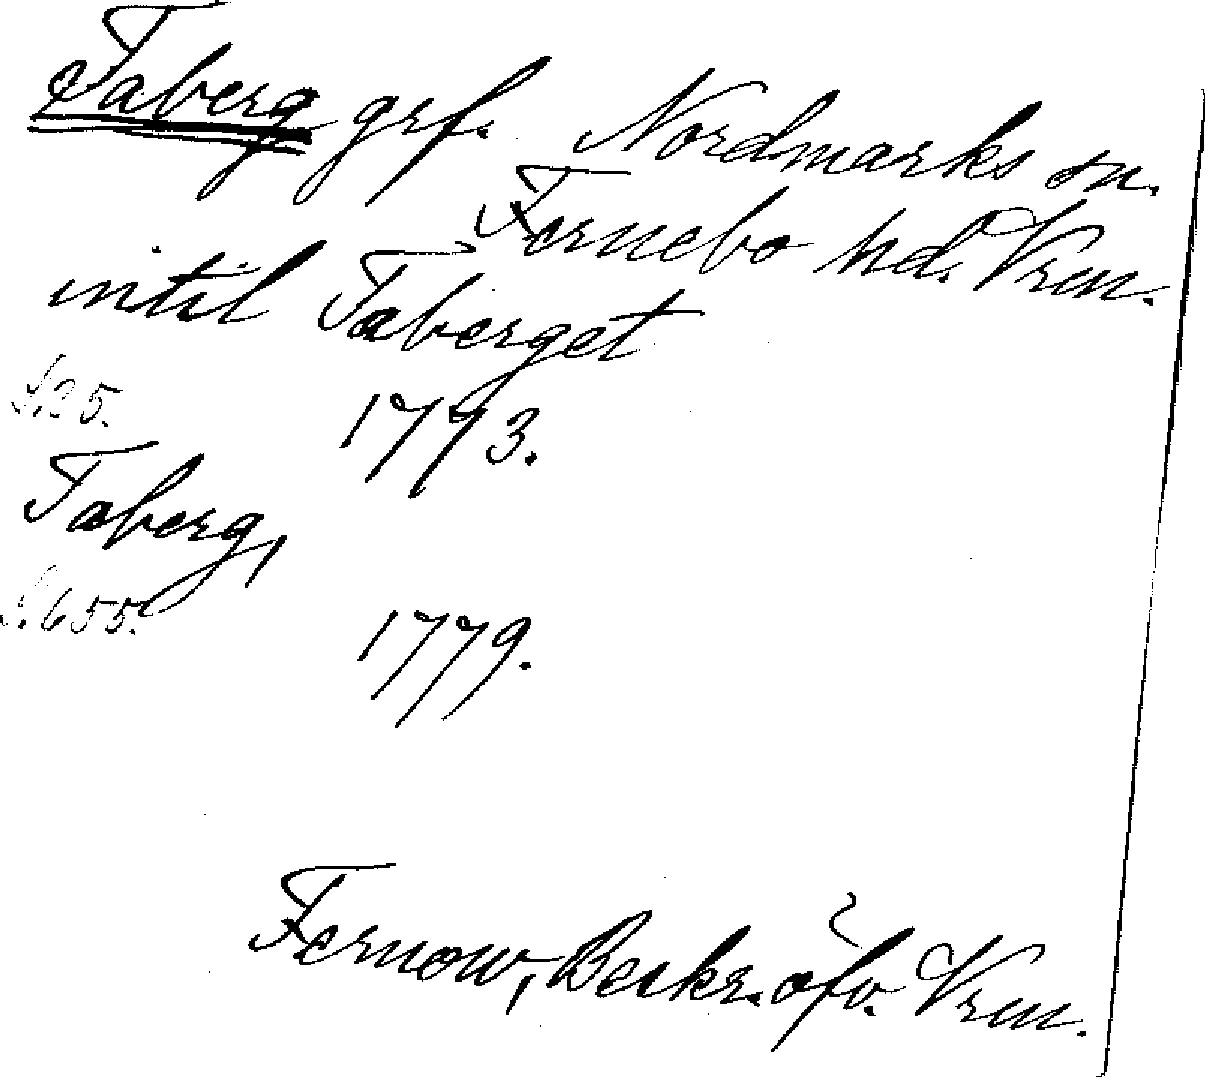 Taberg grf. Nordmarks sn.
Fernebo hd. Vrm.
intil Taberget
S. 25. 1773.
Taberg,
S. 655. 1779.
Fernow, Beskr. öfv. Vrm.